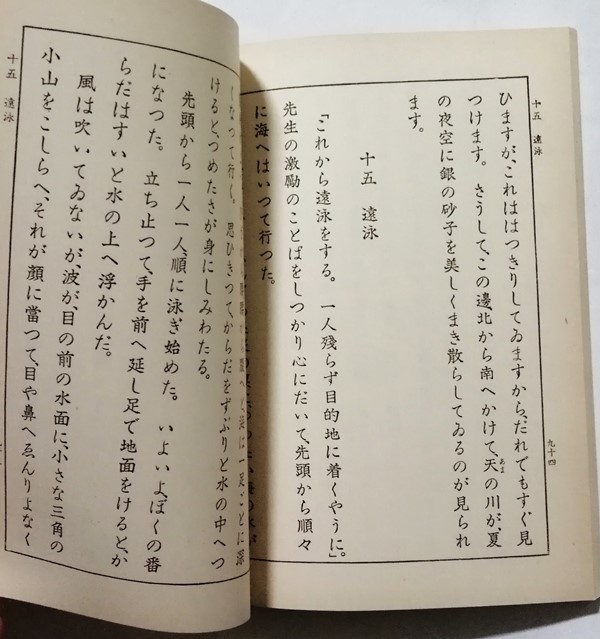 十五 遠泳
九十四
ひますが、これははつきりしてゐますから、だれでもすぐ見
つけます。さうして、この邊、北から南へかけて、天の川が、夏
あま
の夜空に銀の砂子を美しくまき散らしてゐるのが見られ
ます。
十五 遠泳
「これから遠泳をする。一人殘らず目的地に着くやうに。」
先生の激勵のことばをしつかり心にだいて、先頭から順々
に海へはいつて行つた。
くなつて行く。思ひきつてからだをずぶりと水の中へつ
けると、つめたさが身にしみわたる。
先頭から一人一人、順に泳ぎ始めた。いよいよ、ぼくの番
になつた。立ち止つて、手を前へ延し足で地面をけると、か
らだはすいと水の上へ浮かんだ。
風は吹いてゐないが、波が、目の前の水面に、小さな三角の
小山をこしらへ、それが顔に當つて、目や鼻へゑんりよなく
十五 遠泳